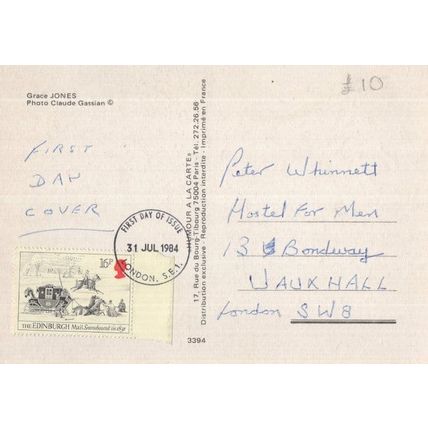 Grace JONES
Photo Claude Gassian ©
£10
FIRST
DAY
COVER
FIRST DAY OF ISSUE
31 JUL 1984
LONDON. S.E.1.
16P
THE EDINBURGH Mail Snowbound in 1831
«HUMOUR A LA CARTE»
17, Rue du Bourg-Tibourg 75004 Paris - Tél: 272.26.56
Distribution exclusive - Reproduction interdite - Imprimé en France
3394
Peter Whinnett
Hostel For Men
13 Bondway
VAUXHALL
London SW8